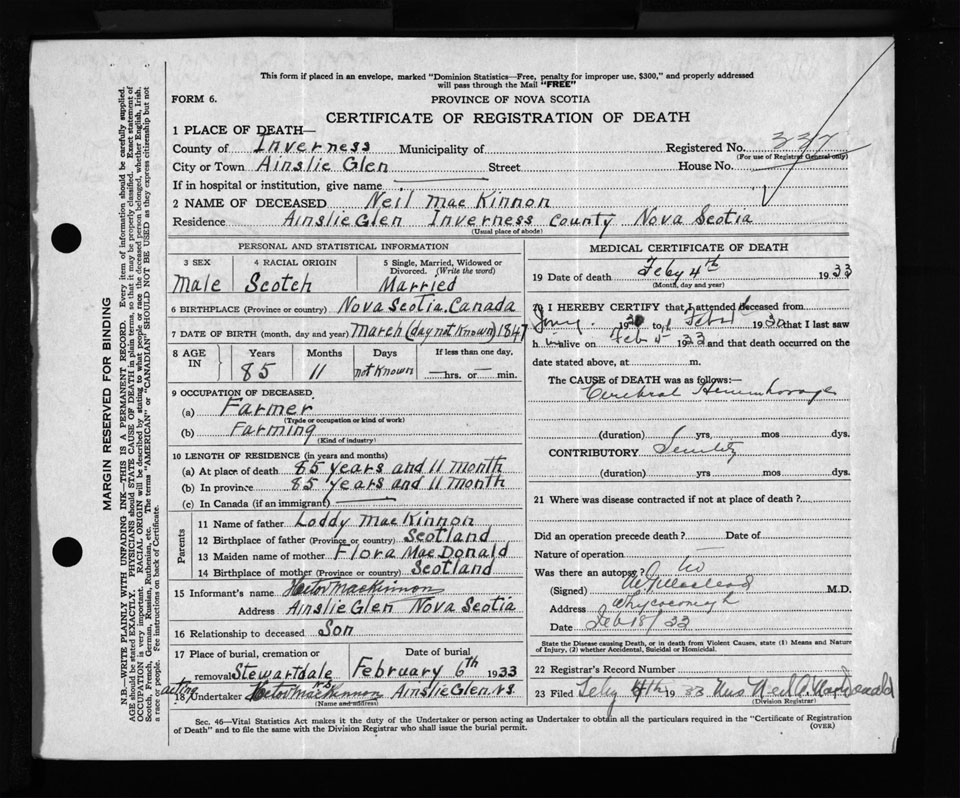 This form if placed in an envelope, marked "Dominion Statistics—Free, penalty for improper use, $300," and properly addressed
will pass through the Mail "FREE"
FORM 6.
PROVINCE OF NOVA SCOTIA
CERTIFICATE OF REGISTRATION OF DEATH
1 PLACE OF DEATH—
County of Inverness Municipality of Registered No. 337
(For use of Registrar General only)
City or Town Ainslie Glen Street House No.
If in hospital or institution, give name
2 NAME OF DECEASED Neil MacKinnon
Residence Ainslie Glen Inverness County Nova Scotia
(Usual place of abode)
PERSONAL AND STATISTICAL INFORMATION
3 SEX 4 RACIAL ORIGIN 5 Single, Married, Widowed or
Divorced. (Write the word)
Male Scotch Married
6 BIRTHPLACE (Province or country) Nova Scotia. Canada
7 DATE OF BIRTH (month, day and year) March (day not known) 1847
8 AGE IN Years Months Days If less than one day,
85 11 not known hrs. or min.
9 OCCUPATION OF DECEASED
(a) Farmer
(Trade or occupation or kind of work)
(b) Farming
(Kind of industry)
10 LENGTH OF RESIDENCE (in years and months)
(a) At place of death 85 years and 11 month
(b) In province 85 years and 11 month
(c) In Canada (if an immigrant)
Parents
11 Name of father Loddy MacKinnon
12 Birthplace of father (Province or country) Scotland
13 Maiden name of mother Flora MacDonald
14 Birthplace of mother (Province or country) Scotland
15 Informant's name Hector MacKinnon
Address Ainslie Glen Nova Scotia
16 Relationship to deceased Son
17 Place of burial, cremation or Date of burial
removal Stewartdale February 6th 1933
acting
18 Undertaker Hector MacKinnon Ainslie Glen, N.S.
(Name and address)
MEDICAL CERTIFICATE OF DEATH
19 Date of death Feby 4th 1933
(Month, day and year)
20 I HEREBY CERTIFY that I attended deceased from
19 to 19 that I last saw
h alive on Feb 19 and that death occurred on the
date stated above, at m.
The CAUSE OF DEATH was as follows:—
Cerebral Hemmhorage
(duration) yrs. mos dys.
CONTRIBUTORY Senility
(duration) yrs mos dys.
21 Where was disease contracted if not at place of death?
Did an operation precede death? Date of
Nature of operation
Was there an autopsy? no
(Signed) M.D.
Address Whycocomagh
Date Feb 18/33
State the Disease causing Death, or in death from Violent Causes, state (1) Means and Nature
of Injury, (2) whether Accidental, Suicidal or Homicidal.
22 Registrar's Record Number
23 Filed Feby 4th 1933 Mrs Neil A. MacDonald
(Division Registrar)
Sec. 46—Vital Statistics Act makes it the duty of the Undertaker or person acting as Undertaker to obtain all the particulars required in the "Certificate of Registration
of Death" and to file the same with the Division Registrar who shall issue the burial permit.
(OVER)
MARGIN RESERVED FOR BINDING
N.B.—WRITE PLAINLY WITH UNFADING INK—THIS IS A PERMANENT RECORD. Every item of information should be carefully supplied.
AGE should be stated EXACTLY. PHYSICIANS should STATE CAUSE OF DEATH in plain terms, so that it may be properly classified. Exact statement of
OCCUPATION is very important. RACIAL ORIGIN will be described by stating to what people or race the deceased person belonged, whether English, Irish,
Scotch, French, German, Russian, Ruthenian, etc. The terms "AMERICAN" or "CANADIAN" SHOULD NOT BE USED as they express citizenship but not
a race or people. Fee instructions on back of Certificate.